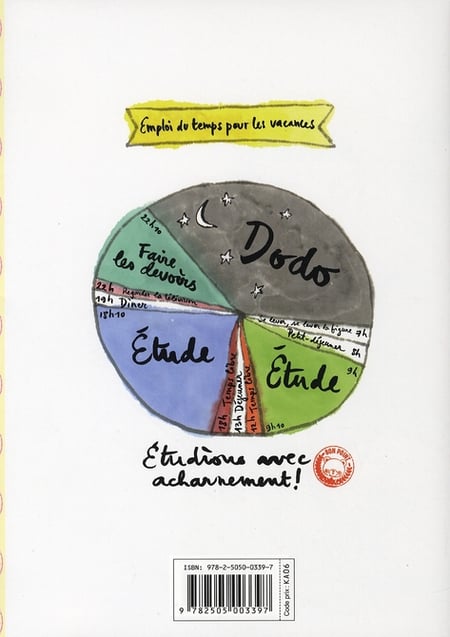 Emploi du temps pour les vacances
Dodo
22h10
Faire
les devoirs
22h Regarder la télévision
19h Dîner
18h10
Étude
Se lever, se laver la figure 7h
Petit-déjeuner 8h
9h
Étude
9h10
12h Temps libre
13h Déjeuner
18h Temps libre
Étudions avec
acharnement!
BON POINT
ISBN: 978-2-5050-0339-7
9 782505 003397
Code prix: KA06